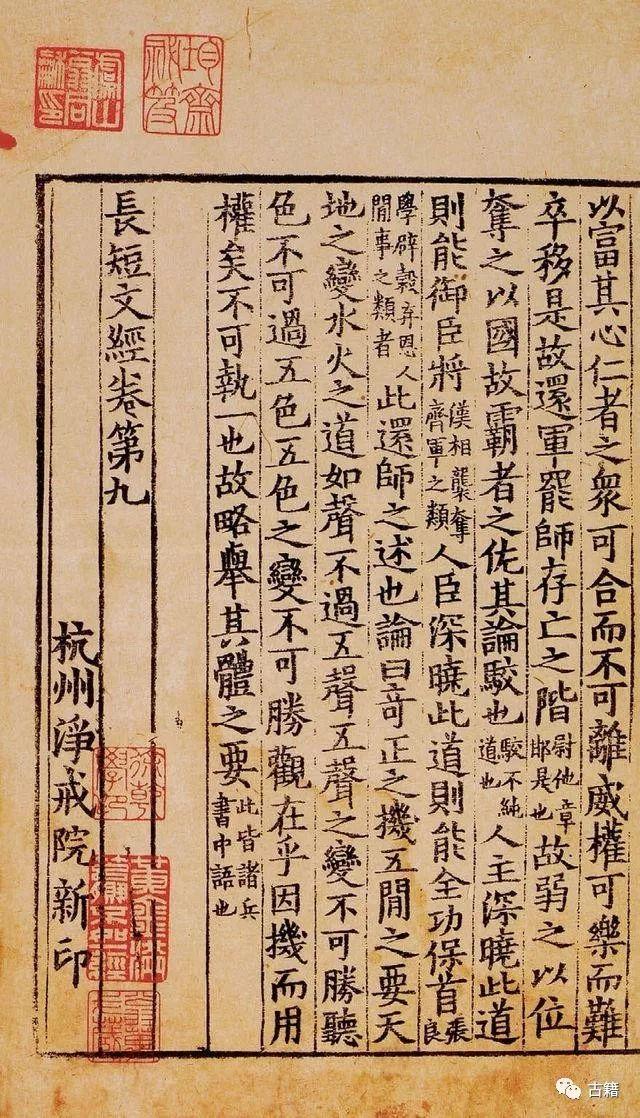 以富其心仁者之衆可合而不可離威權可樂而難
卒移是故還軍罷師存亡之階尉他章邯是也故弱之以位
奪之以國故霸者之佐其論駮也駮不純道也人主深曉此道
則能御臣將漢相襲奪齊軍之類人臣深曉此道則能全功保首張良
學辟穀弃恩人閒事之類者此還師之述也論曰竒正之機五閒之要天
地之變水火之道如聲不過五聲五聲之變不可勝聽
色不可過五色五色之變不可勝觀在乎因機而用
權矣不可執一也故略舉其體之要此皆諸兵書中語也
長短文經卷第九
杭州淨戒院新印
古籍